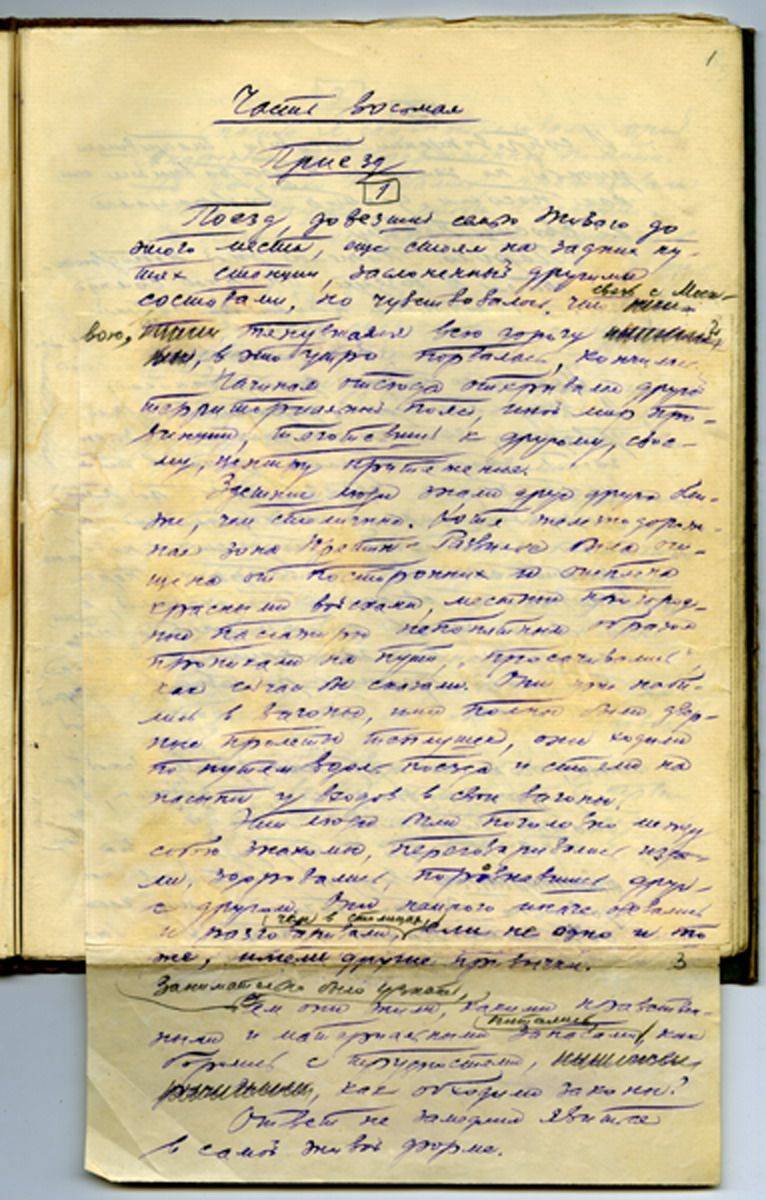 1
Часть восьмая
Приезд
1
Поезд, довезший семью Живаго до
этого места, еще стоял на задних пу-
тях станции, заслоненный другими
составами, но чувствовалось, что связь с Моск-
вою, тянувшаяся всю дорогу,
в это утро порвалась, кончилась.
Начиная отсюда открывался другой
территориальный пояс, иной мир про-
винции, тяготевший к другому, свое-
му, центру притяжения.
Здешние люди знали друг друга бли-
же, чем столичные. Хотя железнодорож-
ная зона Юрятин - Развилье была очи-
щена от посторонних и оцеплена
красными войсками, местные пригород-
ные пассажиры непонятным образом
проникали на пути, "просачивались",
как сейчас бы сказали. Они уже наби-
лись в вагоны, ими полны были двер-
ные пролеты теплушек, они ходили
по путям вдоль поезда и стояли на
насыпи у входов в свои вагоны.
Эти люди были поголовно между
собою знакомы, переговаривались изда-
ли, здоровались, поровнявшись друг
с другом. Они немного иначе одевались
и разговаривали, чем в столицах, ели не одно и то
же, имели другие привычки. 3
Занимательно было узнать,
чем они жили, какими нравствен-
ными и материальными запасами питались, как
боролись с трудностями,
как обходили законы?
Ответ не замедлил явиться
в самой живой форме.